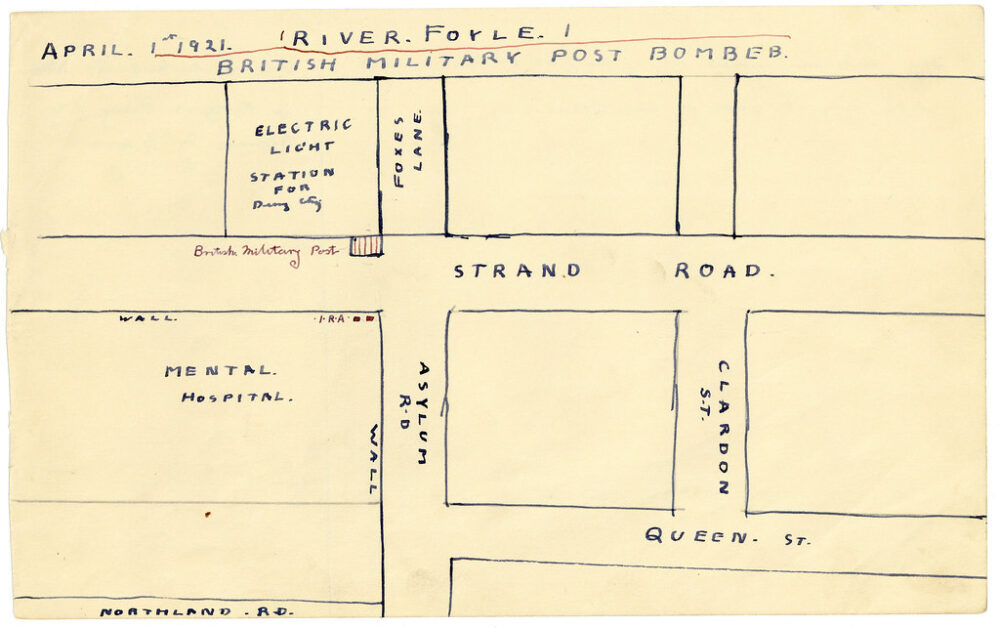 APRIL. 1st 1921. RIVER. FOYLE.
BRITISH MILITARY POST BOMBEB.
ELECTRIC
LIGHT
STATION
FOR
Derry City
FOXES
LANE.
British Military Post
STRAND ROAD.
WALL.
·I·R·A·
MENTAL.
HOSPITAL.
WALL
ASYLUM
R·D
CLARDON
S·T.
QUEEN. ST.
NORTHLAND. RD.